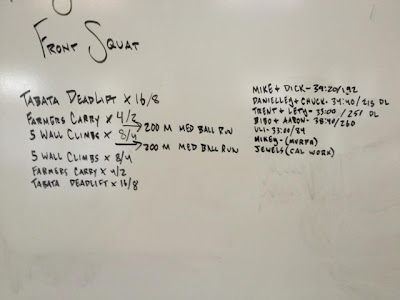 Front Squat
Tabata Deadlift x 16/8
Farmers Carry x 4/2
200 M Med Ball Run
5 Wall Climbs x 8/4
200 M Med Ball Run
5 Wall Climbs x 8/4
Farmers Carry x 4/2
Tabata Deadlift x 16/8
Mike + Dick - 39:20/192
Danielley + Chuck - 34:40/215 DL
Trent + Lety - 33:00/251 DL
Bibo + Aaron - 38:40/260
Uli - 33:00/84
Mikey - (Murph)
Jewels (Cal Work)